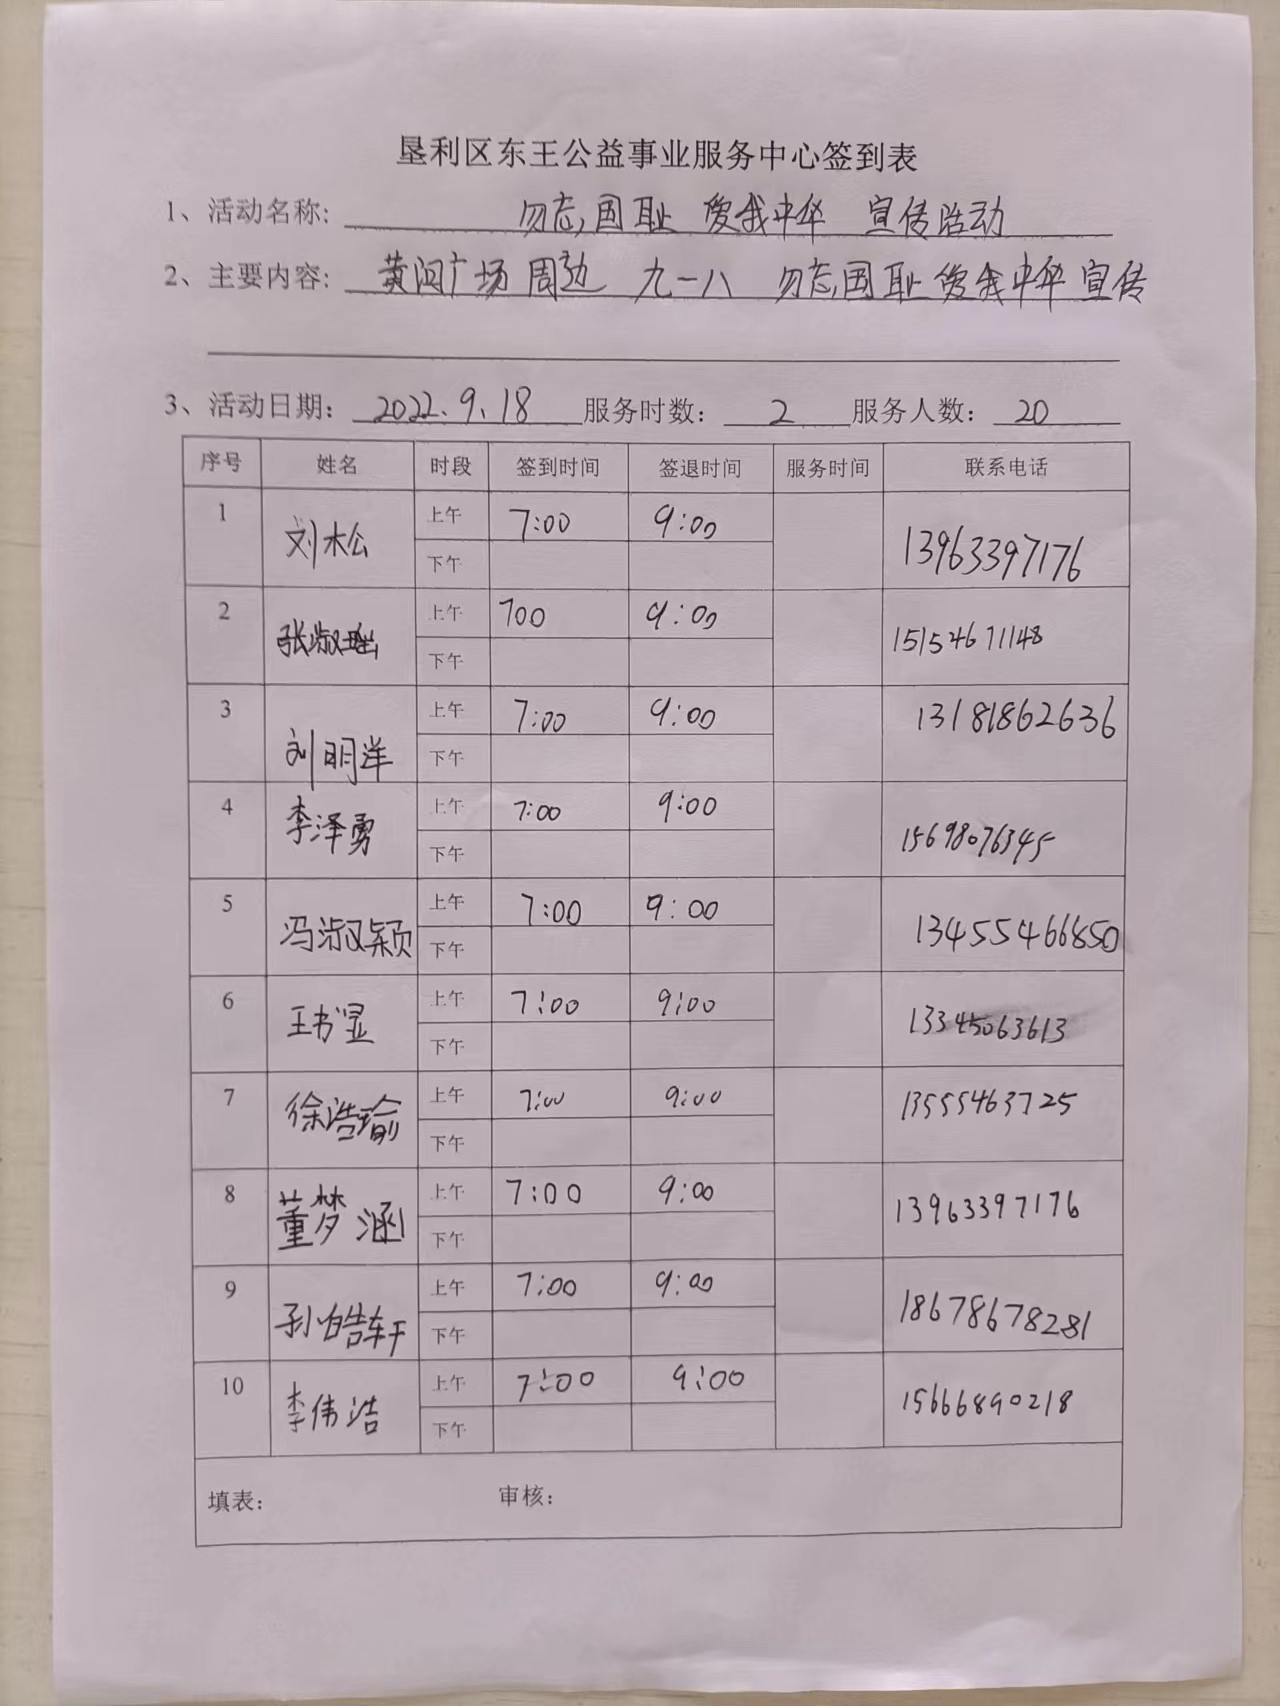 垦利区东王公益事业服务中心签到表
1、活动名称: 勿忘国耻 爱我中华 宣传活动
2、主要内容: 黄河广场周边 九一八 勿忘国耻爱我中华宣传
3、活动日期: 2022.9.18 服务时数: 2 服务人数: 20
序号 姓名 时段 签到时间 签退时间 服务时间 联系电话
1 刘松 上午 7:00 9:00 13963397176
下午
2 张淑瑶 上午 700 9:00 15154671148
下午
3 刘明洋 上午 7:00 9:00 13181862636
下午
4 李泽勇 上午 7:00 9:00 15698076345
下午
5 冯淑颖 上午 7:00 9:00 13455466850
下午
6 王书 上午 7:00 9:00 13345063613
下午
7 徐浩瑜 上午 7:00 9:00 13555463725
下午
8 董梦涵 上午 7:00 9:00 13963397176
下午
9 孙皓轩 上午 7:00 9:00 18678678281
下午
10 李伟浩 上午 7:00 9:00 15666890218
下午
填表: 审核: